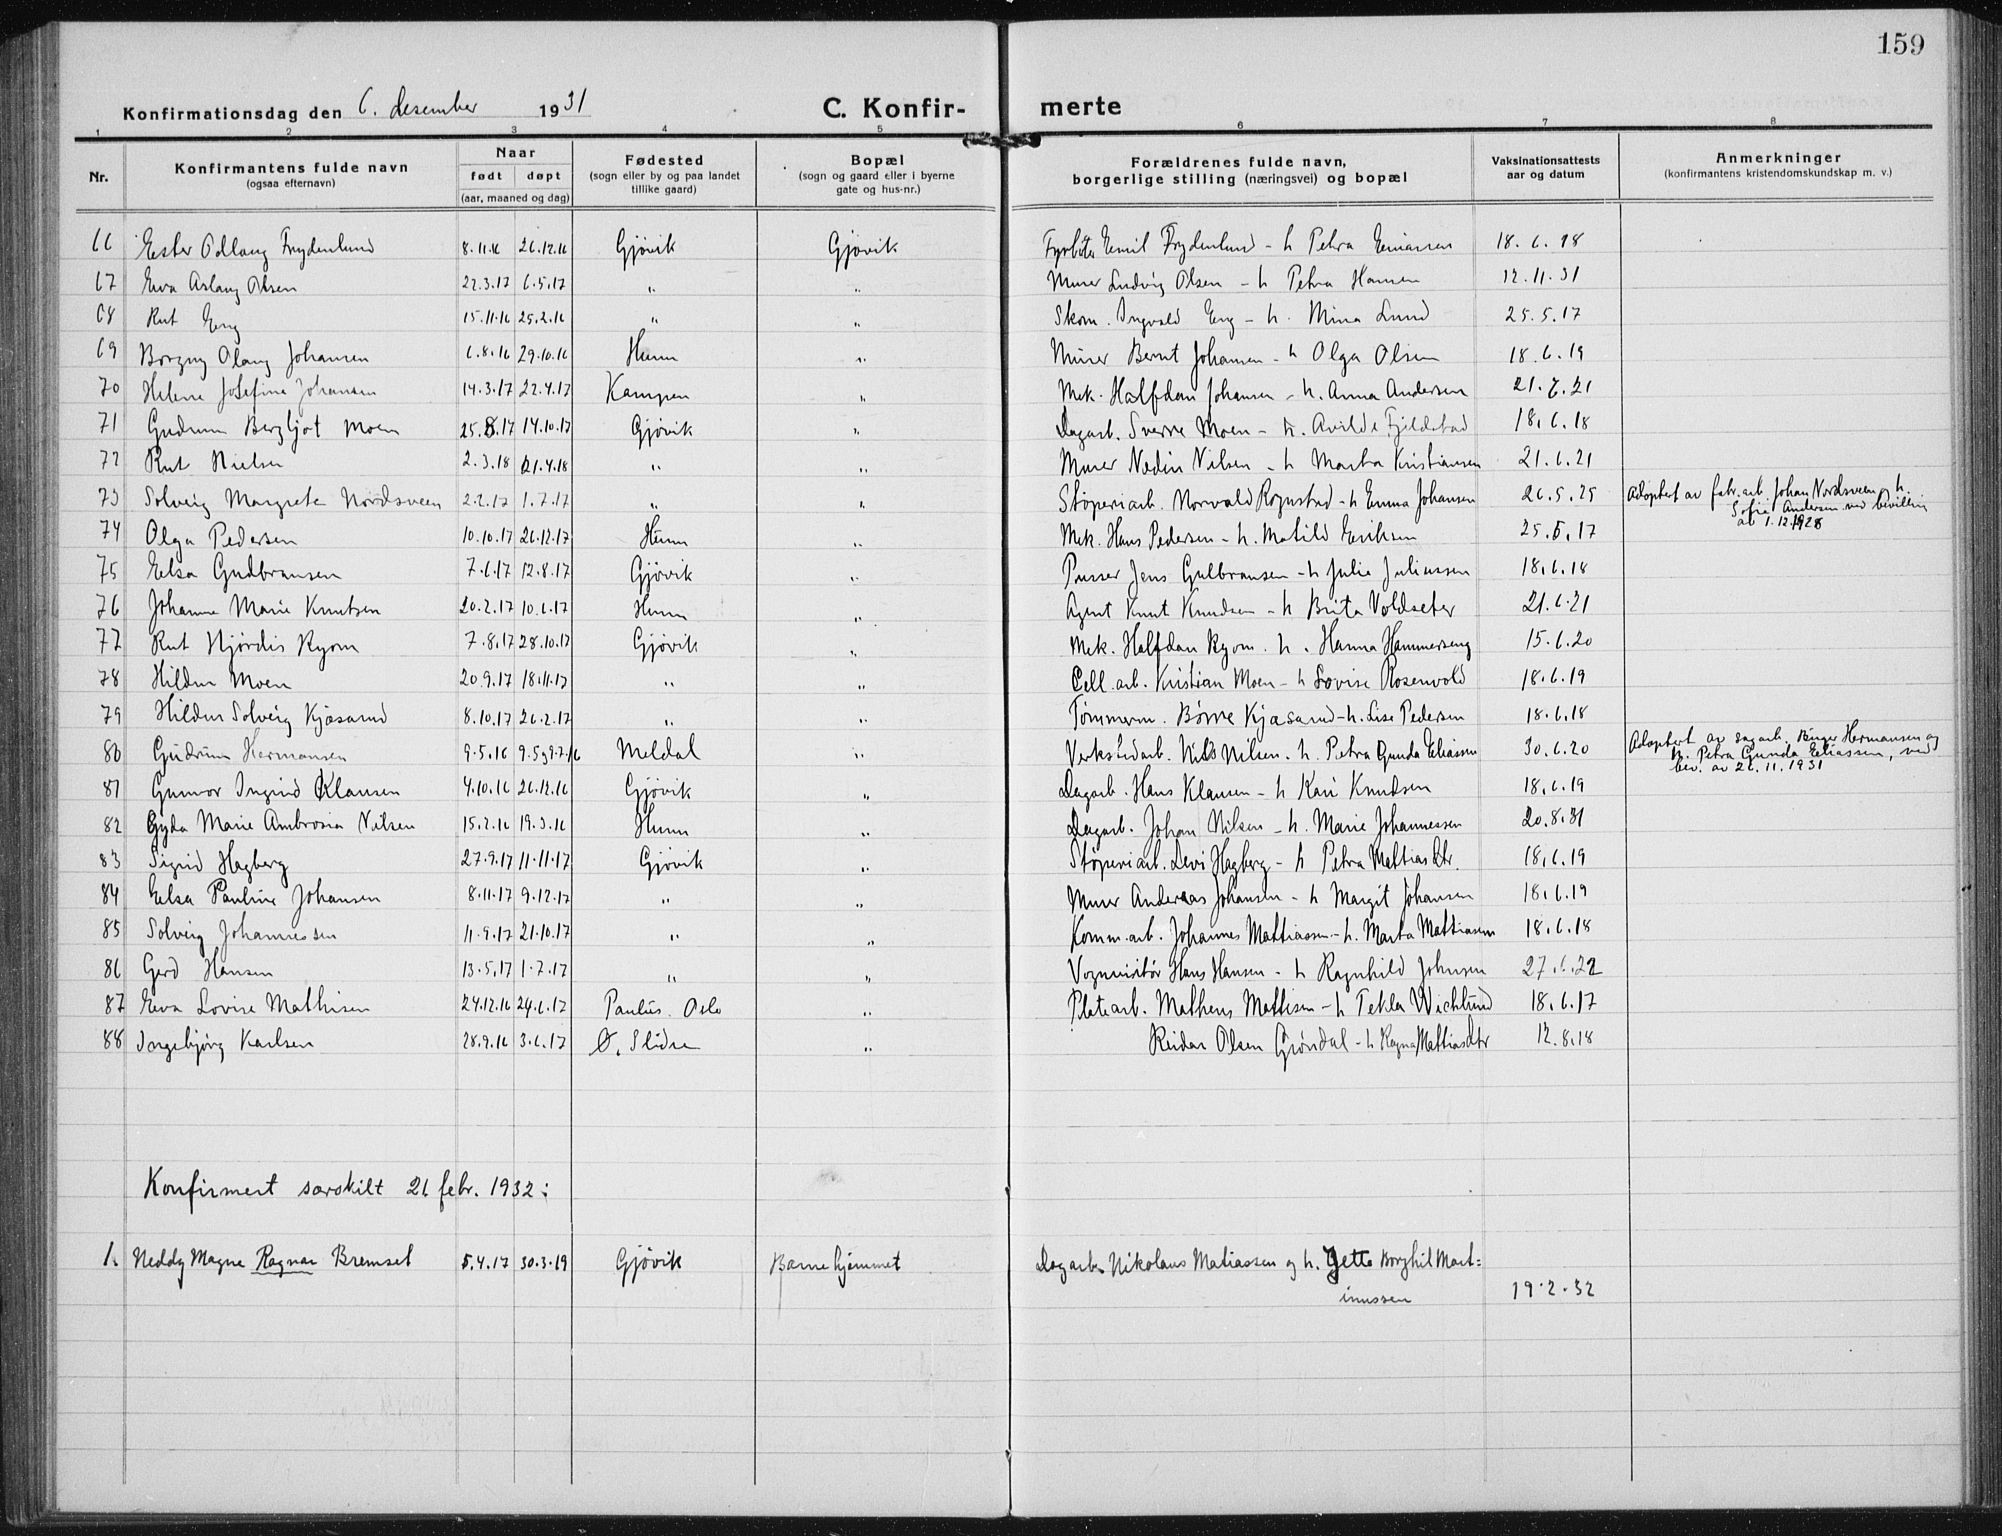 159
Konfirmationsdag den 6. desember 1931 C. Konfirmerte
1 2 3 4 5 6 7 8
Nr. Konfirmantens fulde navn (ogsaa efternavn) Naar født døpt (aar, maaned og dag) Fødested (sogn eller by og paa landet tillike gaard) Bopæl (sogn og gaard eller i byerne gate og hus-nr.) Forældrenes fulde navn, borgerlige stilling (næringsvei) og bopæl Vaksinationsattests aar og datum Anmerkninger (konfirmantens kristendomskundskap m. v.)
66 Ester Odlaug Frydenlund 8.11.16 26.12.16 Gjøvik Gjøvik Fyrbøter Emil Frydenlund - h Petra Einarsen 18.6.18
67 Eva Aslaug Olsen 22.3.17 6.5.17 " " Murer Ludvig Olsen - h Petra Hansen 12.11.31
68 Rut Eng 15.11.16 25.2.16 " " Skom. Ingvald Eng - h. Mina Lund 25.5.17
69 Borgny Olaug Johansen 6.8.16 29.10.16 Hunn " Murer Bernt Johansen - h Olga Olsen 18.6.19
70 Helene Josefine Johansen 14.3.17 22.4.17 Kampen " Mek. Halfdan Johansen - h. Anna Andersen 21.6.21
71 Gudrun Bergljot Moen 25.8.17 14.10.17 Gjøvik " Dagarb. Sverre Moen - h. Avilde Fjeldstad 18.6.18
72 Rut Nielsen 2.3.18 21.4.18 " " Murer Nedin Nilsen - h Marta Kristiansen 21.6.21
73 Solveig Margrete Nordsveen 2.2.17 1.7.17 " " Støperiarb. Norvald Rognstad - h Emma Johansen 26.5.25 Adoptert av fabr.arb. Johan Nordsveen, h. Sofie Andersen ved bevilling av 1.12.1928
74 Olga Pedersen 10.10.17 26.12.17 Hunn " Mek. Hans Pedersen - h. Matild Eriksen 25.5.17
75 Elsa Gudbransen 7.6.17 12.8.17 Gjøvik " Pusser Jens Gulbransen - h Julie Juliussen 18.6.18
76 Johanne Marie Knutsen 20.2.17 10.6.17 Hunn " Agent Knut Knudsen - h Brita Voldseter 21.6.21
77 Rut Hjørdis Ryom 7.8.17 28.10.17 Gjøvik " Mek. Halfdan Ryom. h. Hanna Hammerseng 15.6.20
78 Hildur Moen 20.9.17 18.11.17 " " Cell.arb. Kristian Moen - h Lovise Rosenvold 18.6.19
79 Hildur Solveig Kjøsarud 8.10.17 26.2.17 " " Tømmerm. Børre Kjøsarud - h. Lise Pedersen 18.6.18
80 Gudrun Hermansen 9.5.16 9.5 og 9.7.16 Meldal " Verkstedarb. Nils Nilsen. h. Petra Gunda Eliassen 30.6.20 Adoptert av dagarb. Birger Hermansen og h. Petra Gunda Eliassen, ved bev. av 26.11.1931
81 Gunvor Ingrid Klausen 4.10.16 26.12.16 Gjøvik " Dagarb. Hans Klausen - h Kari Knudsen 18.6.19
82 Gyda Marie Ambrosia Nilsen 15.2.16 19.3.16 Hunn " Dagarb. Johan Nilsen - h. Marie Johannessen 20.8.31
83 Sigrid Hagberg 27.9.17 11.11.17 Gjøvik " Støperiarb. Levi Hagberg - h Petra Mattiasdtr. 18.6.19
84 Elsa Pauline Johansen 8.11.17 9.12.17 " " Murer Andereas Johansen - h Margit Johansen 18.6.19
85 Solveig Johannessen 11.9.17 21.10.17 " " Komm.arb. Johannes Mattiassen - h. Marta Mattiasen 18.6.18
86 Gerd Hansen 13.5.17 1.7.17 " " Vognvisitør Hans Hansen - h Ragnhild Johnsen 27.6.22
87 Eva Lovise Mathisen 24.12.16 24.6.17 Paulus. Oslo " Platearb. Matheus Mattisen - h Tekla Wicklund 18.6.17
88 Ingebjørg Karlsen 28.9.16 3.6.17 Ø. Slidre " Reidar Olsen Grøndal - h Ragna Mattiasdtr 12.8.18
Konfirmert særskilt 21 febr. 1932:
1. Neddy Magne Ragnar Bremset 5.4.17 30.3.19 Gjøvik Barnehjemmet Dagarb. Nikolaus Matiassen og h. Jette Borghil Mart=
inussen 19.2.32